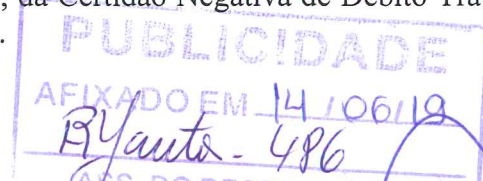 , da Certidão Negativa de Débito Tra
.
PUBLICIDADE
AFIXADO EM 14 / 06/19
- 486
ASS. DO